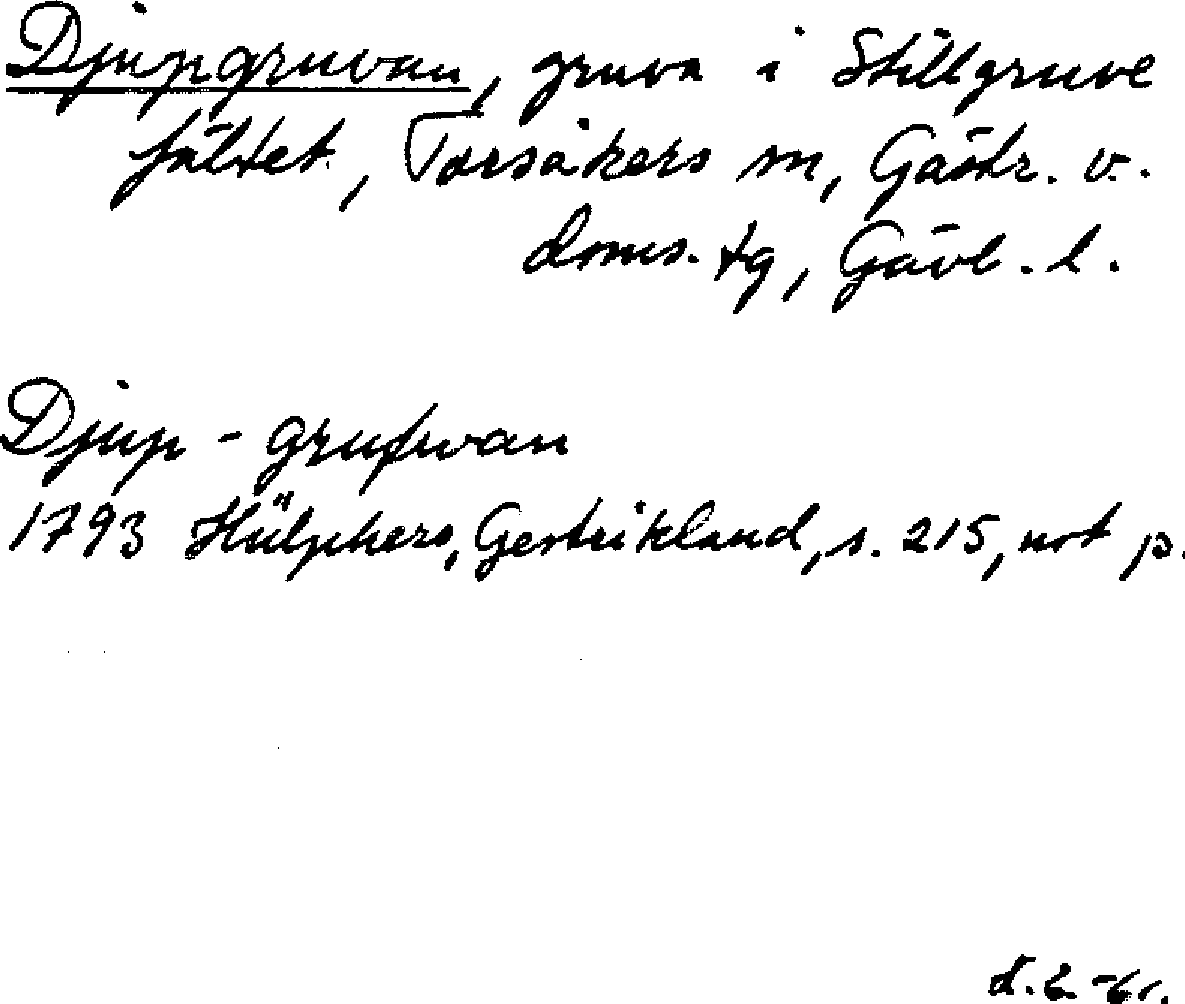 Djupgruvan, gruva i Stillgruve
fältet, Torsåkers sn, Gästr. v.
doms. tg, Gävl. l.
Djup - grufwan
1793 Hülphers, Gestrikland, s. 215, not p.